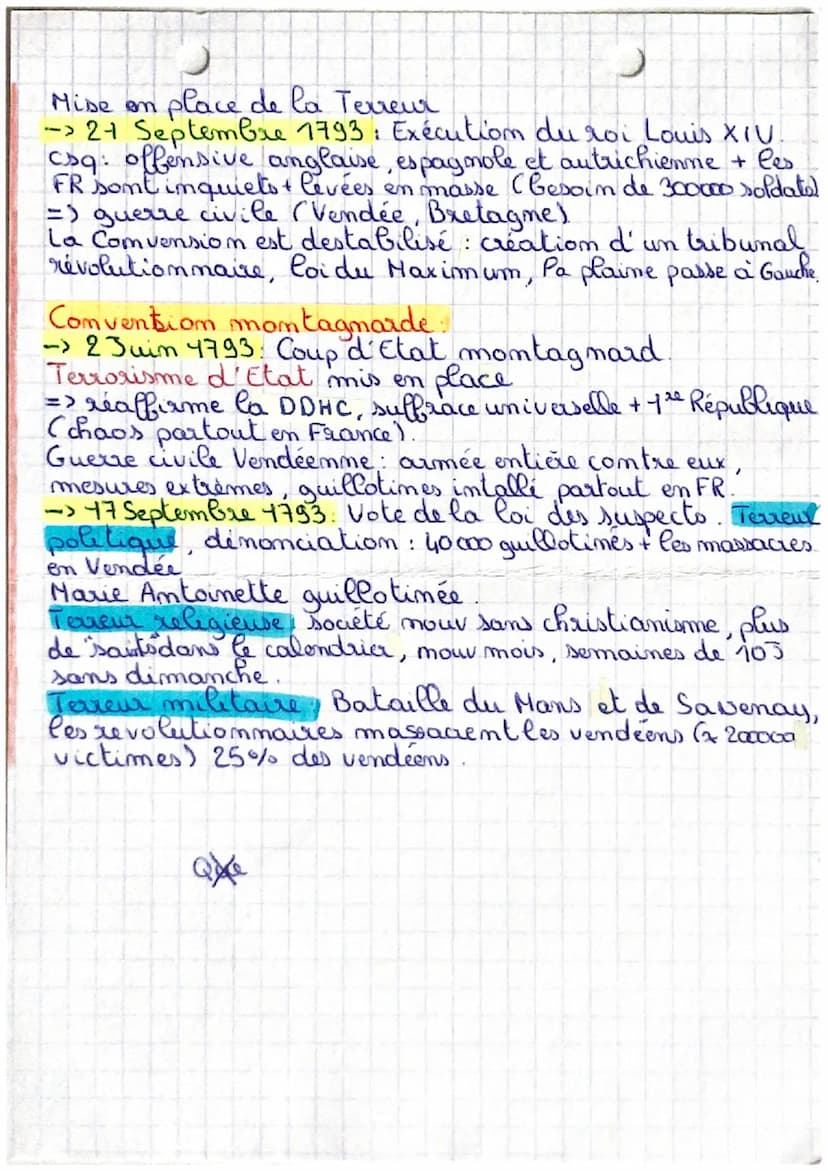 Mise en place de la Terreur
-> 21 Septembre 1793 : Exécution du roi Louis XIV.
csq : offensive anglaise, espagnole et autrichienne + les
FR sont inquiets + levées en masse (besoin de 300000 soldats)
=> guerre civile (Vendée, Bretagne)
La Convension est destabilisé : création d'un tribunal
révolutionnaire, loi du Maximum, la plaine passe à Gauche.
Convention montagnarde :
-> 2 Juin 1793 : Coup d'Etat montagnard.
Terrorisme d'Etat mis en place
=> réaffirme la DDHC, suffrace universelle + 1re République
(chaos partout en France).
Guerre civile Vendéenne : armée entière contre eux,
mesures extrêmes, guillotines intallé partout en FR.
-> 17 Septembre 1793 : Vote de la loi des suspects. Terreur
politique, dénonciation : 40 000 guillotinés + les massacres
en Vendée
Marie Antoinette guillotinée.
Terreur religieuse, société nouv sans christianisme, plus
de "saints" dans le calendrier, nouv mois, semaines de 10j
sans dimanche.
Terreur militaire, Bataille du Mans et de Savenay,
les revolutionnaires massacrent les vendéens (≈ 200000
victimes) 25% des vendéens.